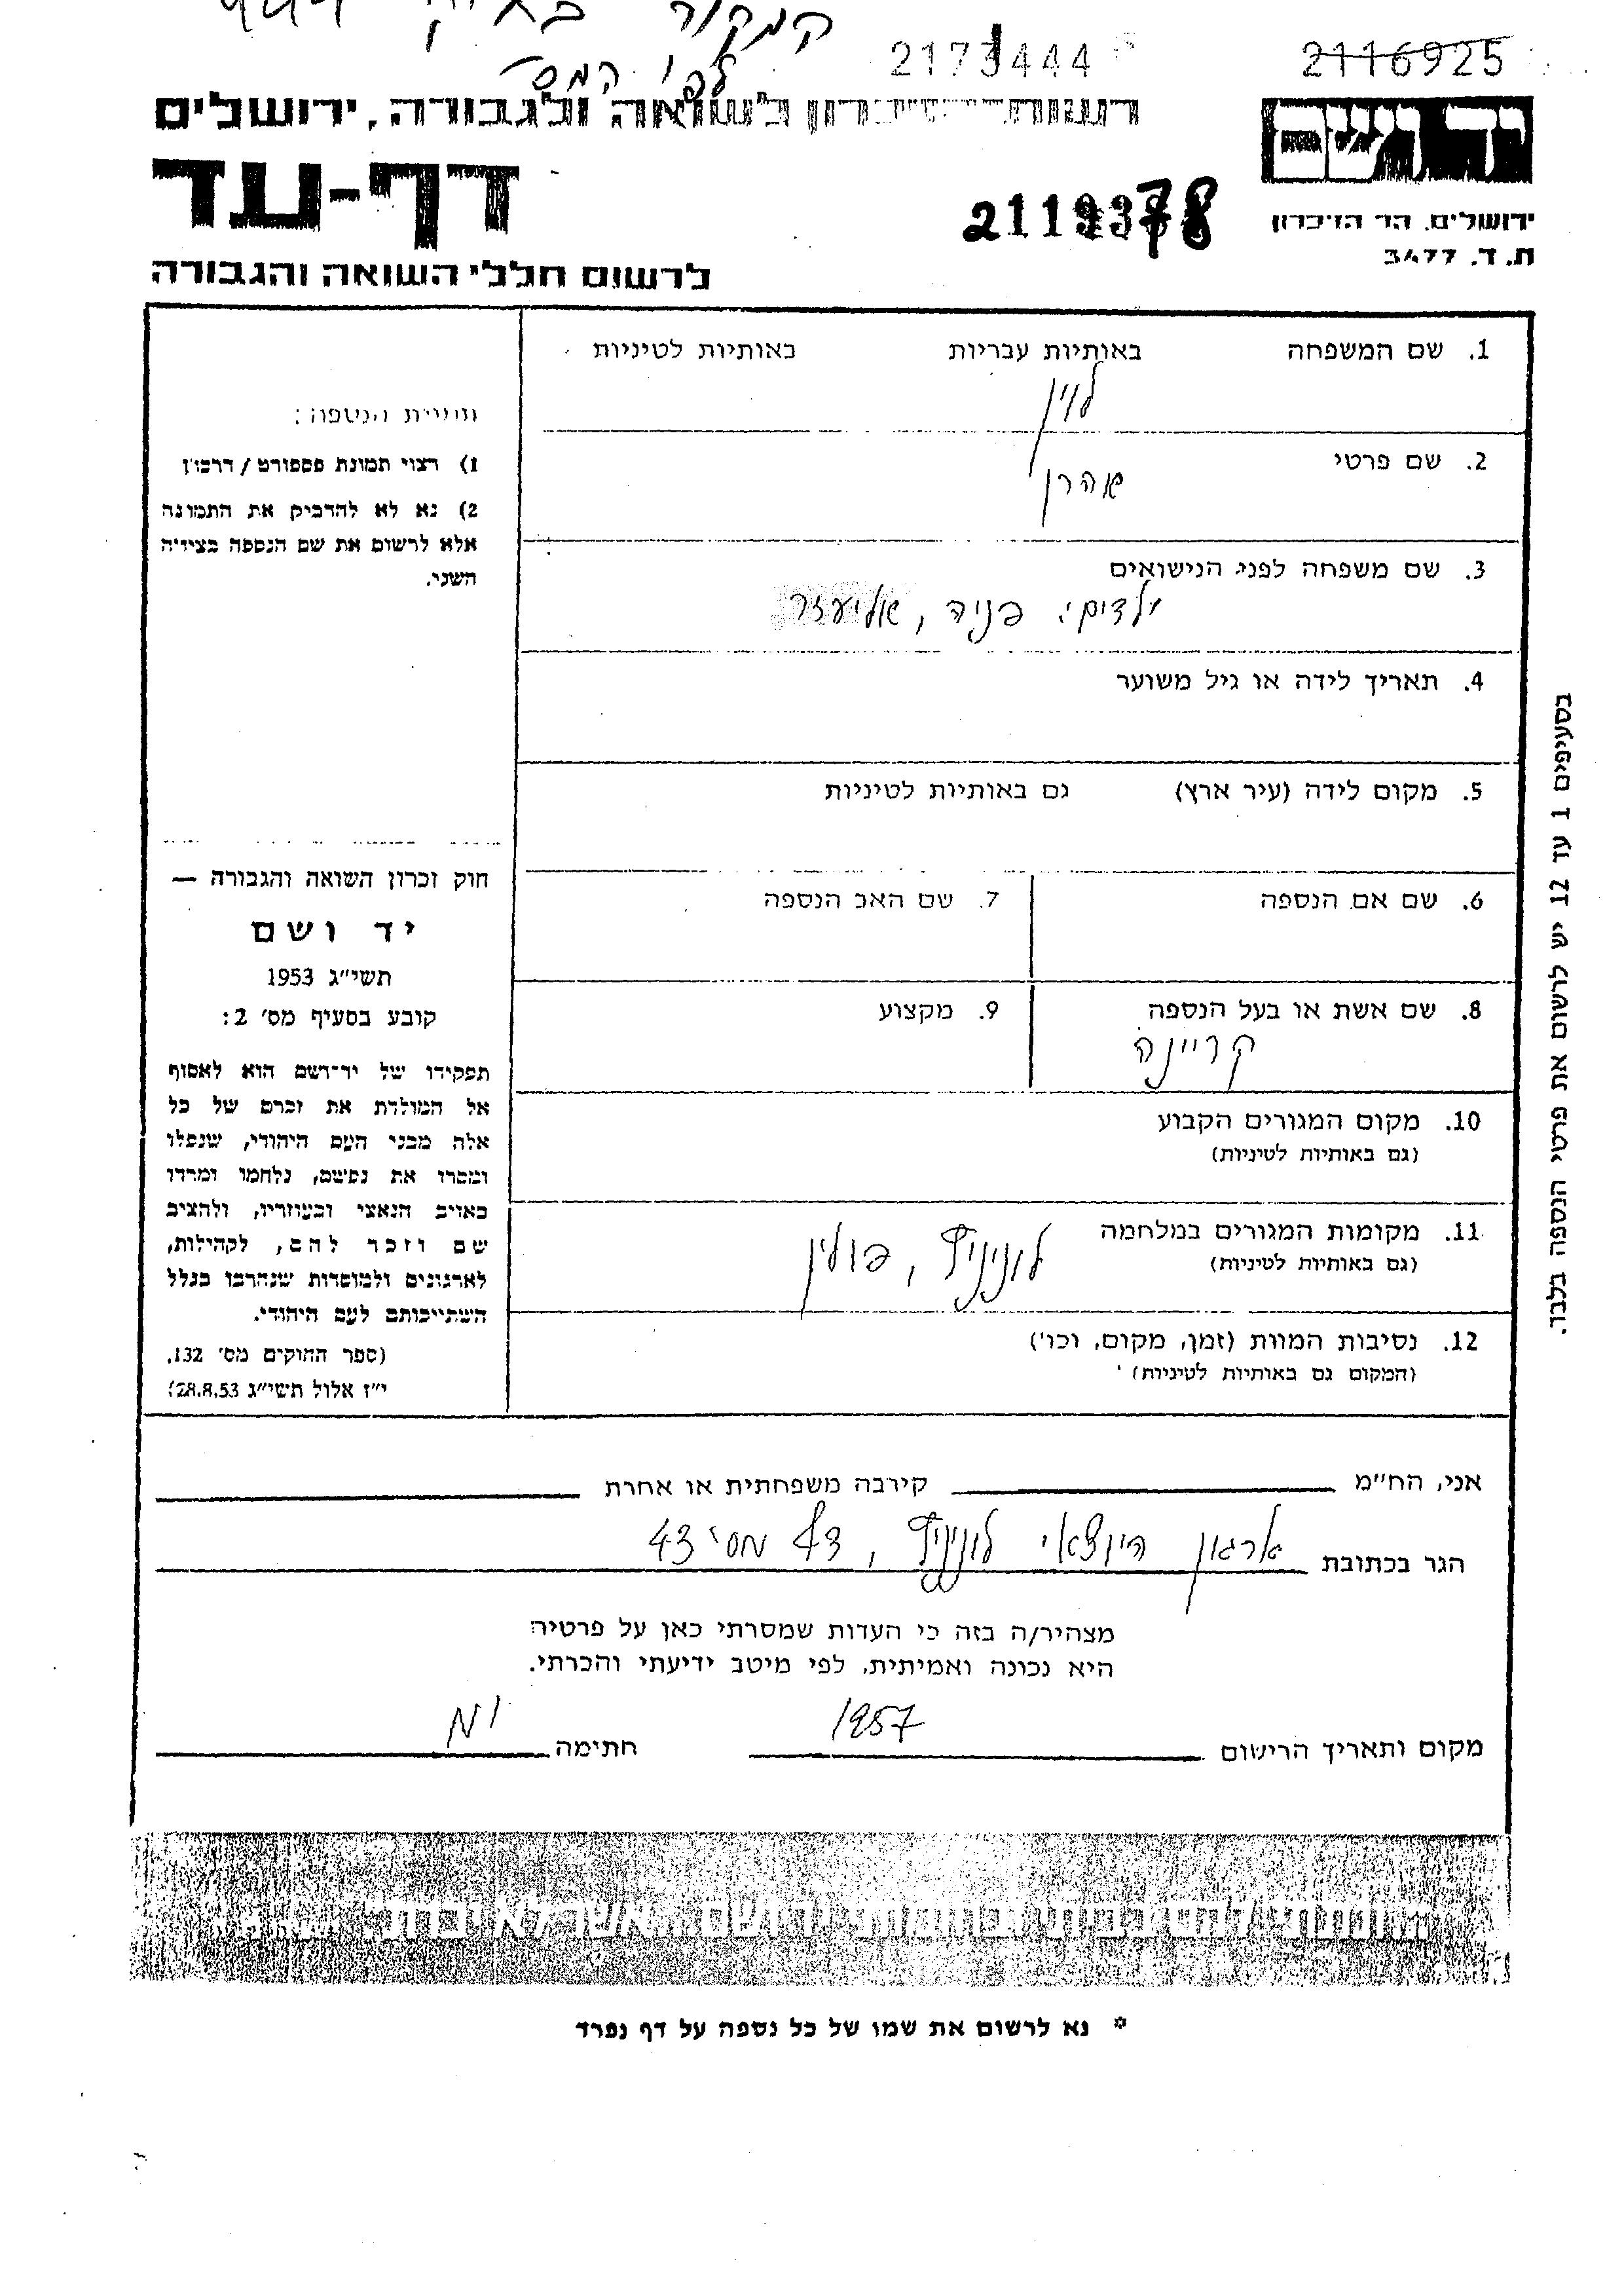 המקור בתיק
לפי המס'
2173444
2116925
רשות הזיכרון לשואה ולגבורה, ירושלים
יד ושם
דף-עד
2119378
ירושלים, הר הזיכרון
ת. ד. 3477
לרשום חללי השואה והגבורה
1. שם המשפחה באותיות עבריות באותיות לטיניות
לוין
2. שם פרטי
אהרן
3. שם משפחה לפני הנישואים
ילדים: פניה, אליעזר
4. תאריך לידה או גיל משוער
5. מקום לידה (עיר ארץ) גם באותיות לטיניות
6. שם אם הנספה
7. שם האב הנספה
8. שם אשת או בעל הנספה
קריינה
9. מקצוע
10. מקום המגורים הקבוע
(גם באותיות לטיניות)
11. מקומות המגורים במלחמה
(גם באותיות לטיניות)
לונינץ, פולין
12. נסיבות המוות (זמן, מקום, וכו')
(המקום גם באותיות לטיניות)
תמונת הנספה:
1) רצוי תמונת פספורט/דרכון
2) נא לא להדביק את התמונה
אלא לרשום את שם הנספה בצידיה
השני.
חוק זכרון השואה והגבורה —
יד ושם
תשי״ג 1953
קובע בסעיף מס׳ 2:
תפקידו של יד־ושם הוא לאסוף
אל המולדת את זכרם של כל
אלה מבני העם היהודי, שנפלו
ומסרו את נפשם, נלחמו ומרדו
באויב הנאצי ובעוזריו, ולהציב
שם וזכר להם, לקהילות,
לארגונים ולמוסדות שנהרבו בגלל
השתייכותם לעם היהודי.
(ספר החוקים מס׳ 132,
י״ז אלול תשי״ג 28.8.53)
בסעיפים 1 עד 12 יש לרשום את פרטי הנספה בלבד.
אני, הח״מ קירבה משפחתית או אחרת
הגר בכתובת ארגון היוצאי לונינץ, דף מס' 43
מצהיר/ה בזה כי העדות שמסרתי כאן על פרטיה
היא נכונה ואמיתית, לפי מיטב ידיעתי והכרתי.
מקום ותאריך הרישום 1957 חתימה
״ונתתי להם בביתי ובחומותי יד ושם...אשר לא יכרת״
* נא לרשום את שמו של כל נספה על דף נפרד